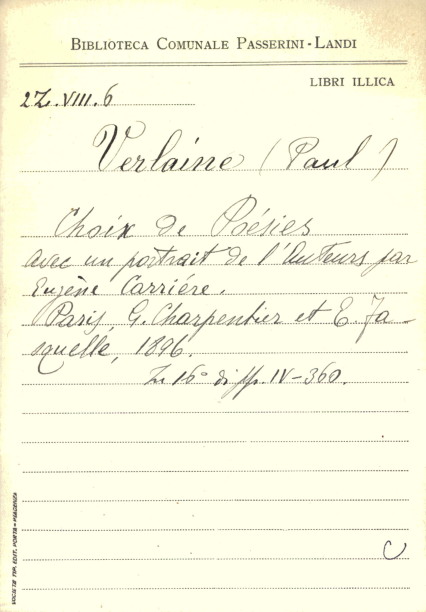 BIBLIOTECA COMUNALE PASSERINI-LANDI
LIBRI ILLICA
2Z.VIII.6
Verlaine (Paul)
Choix de Poésies
avec un portrait de l'Auteurs par
Eugène Carriére.
Paris, G. Charpentier et E. Fa-
squelle, 1896.
16° di pp. IV-360.
SOCIETÀ TIP. EDIT. PORTA - PIACENZA